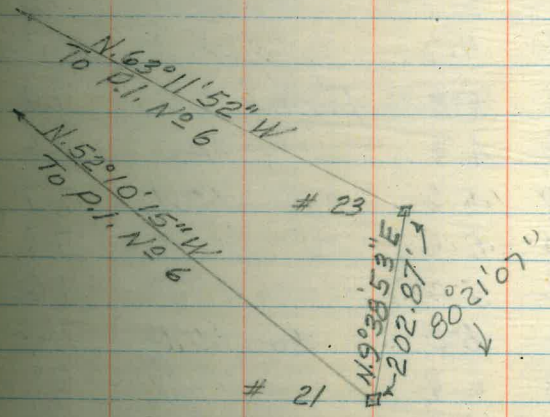 N.63°11'52"W
To P.I. Nº 6
N.52°10'15"W
To P.I. Nº 6
# 23
N.9°38'53"E
202.87'
80°21'07"
# 21